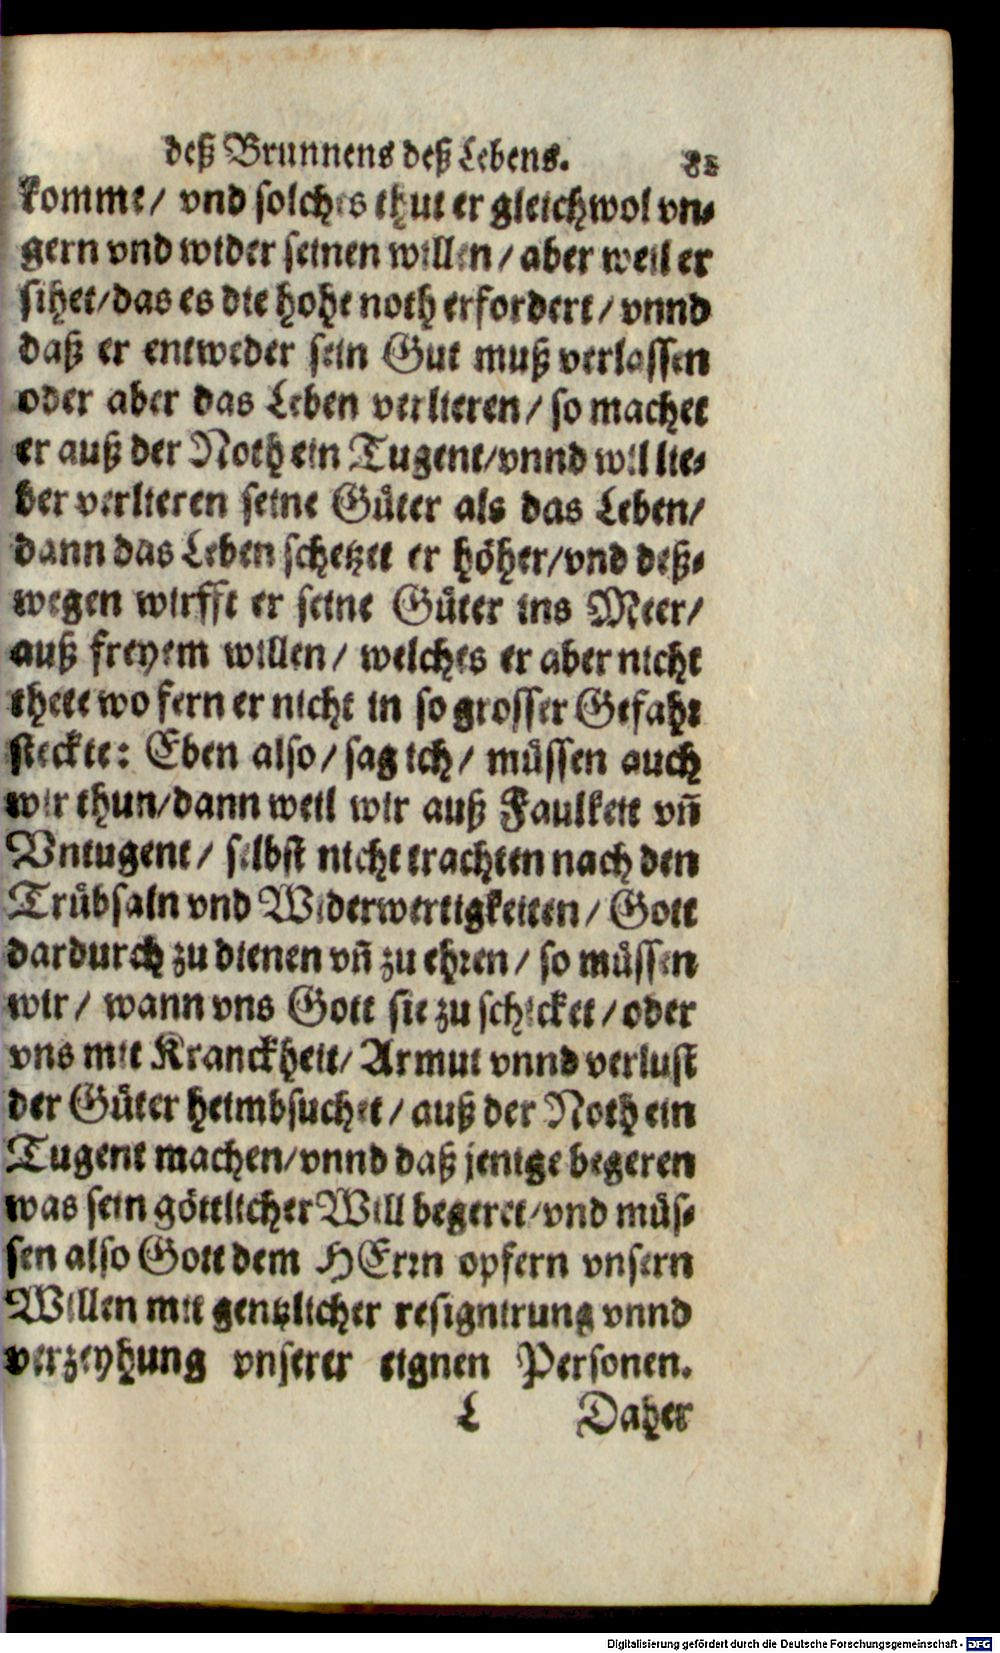 deß Brunnens deß Lebens. 81
komme/ vnd solches thut er gleichwol vn⸗
gern vnd wider seinen willen/ aber weil er
sihet/das es die hohe noth erfordert/ vnnd
daß er entweder sein Gut muß verlassen
oder aber das Leben verlieren/ so machet
er auß der Noth ein Tugent/vnnd wil lie⸗
ber verlieren seine Güter als das Leben/
dann das Leben schetzet er höher/vnd deß⸗
wegen wirfft er seine Güter ins Meer/
auß freyem willen/ welches er aber nicht
thete wo fern er nicht in so grosser Gefahr
steckte: Eben also/ sag ich/ müssen auch
wir thun/dann weil wir auß Faulkeit vn̄
Vntugent/ selbst nicht trachten nach den
Trübsaln vnd Widerwertigkeiten/ Gott
dardurch zu dienen vn̄ zu ehren/ so müssen
wir/ wann vns Gott sie zu schicket/ oder
vns mit Kranckheit/ Armut vnnd verlust
der Güter heimbsuchet/ auß der Noth ein
Tugent machen/vnnd daß jenige begeren
was sein göttlicher Will begeret/vnd müs⸗
sen also Gott dem HErrn opfern vnsern
Willen mit gentzlicher resignirung vnnd
verzeyhung vnserer eignen Personen.
L Daher
Digitalisierung gefördert durch die Deutsche Forschungsgemeinschaft - DFG